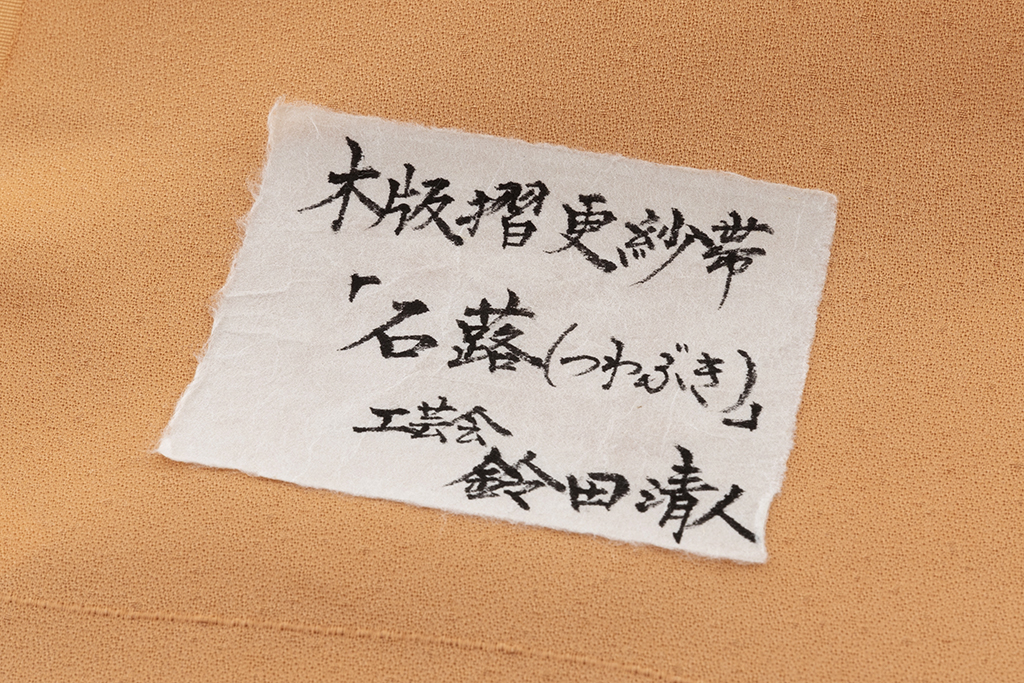 木版摺更紗帯
「石蕗(つわぶき)」
工芸会
鈴田清人